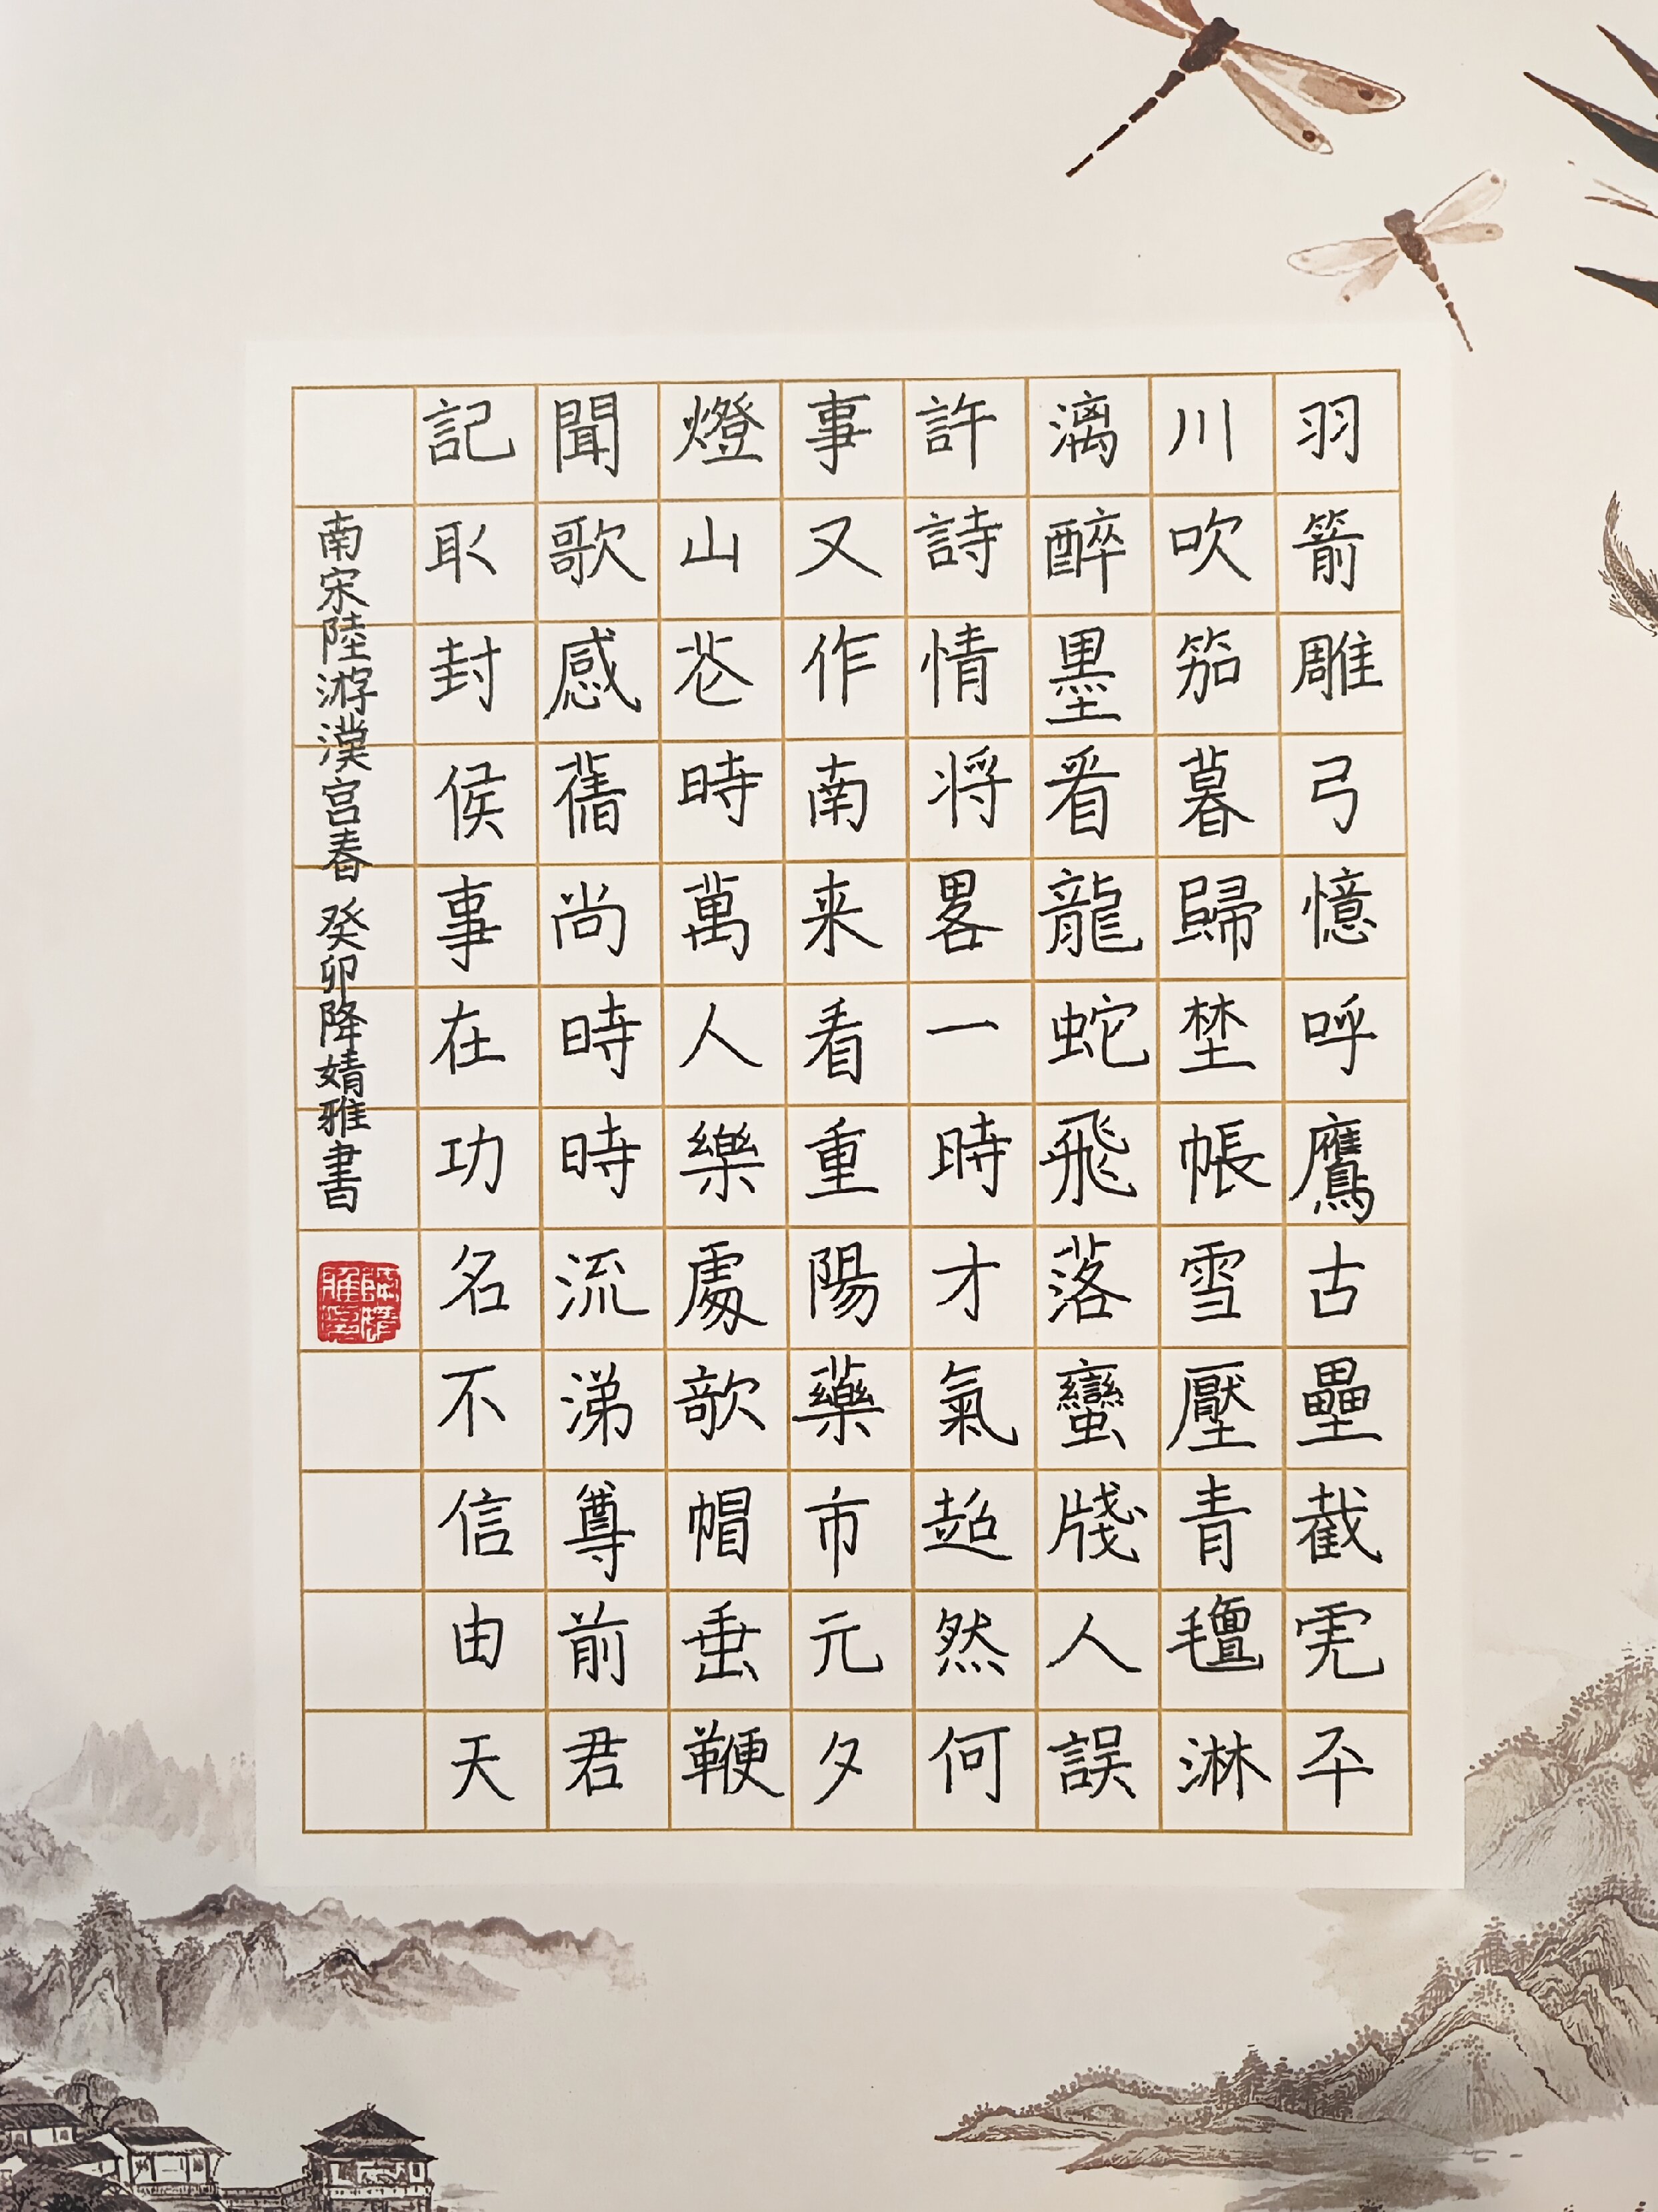 羽箭雕弓憶呼鷹古壘截虎平
川吹笳暮歸埜帳雪壓青氈淋
漓醉墨看龍蛇飛落蠻牋人誤
許詩情将畧一時才氣超然何
事又作南来看重陽藥市元夕
燈山花時萬人樂處欹帽垂鞭
聞歌感舊尚時時流涕尊前君
記取封侯事在功名不信由天
南宋陸游漢宮春 癸卯降婧雅書